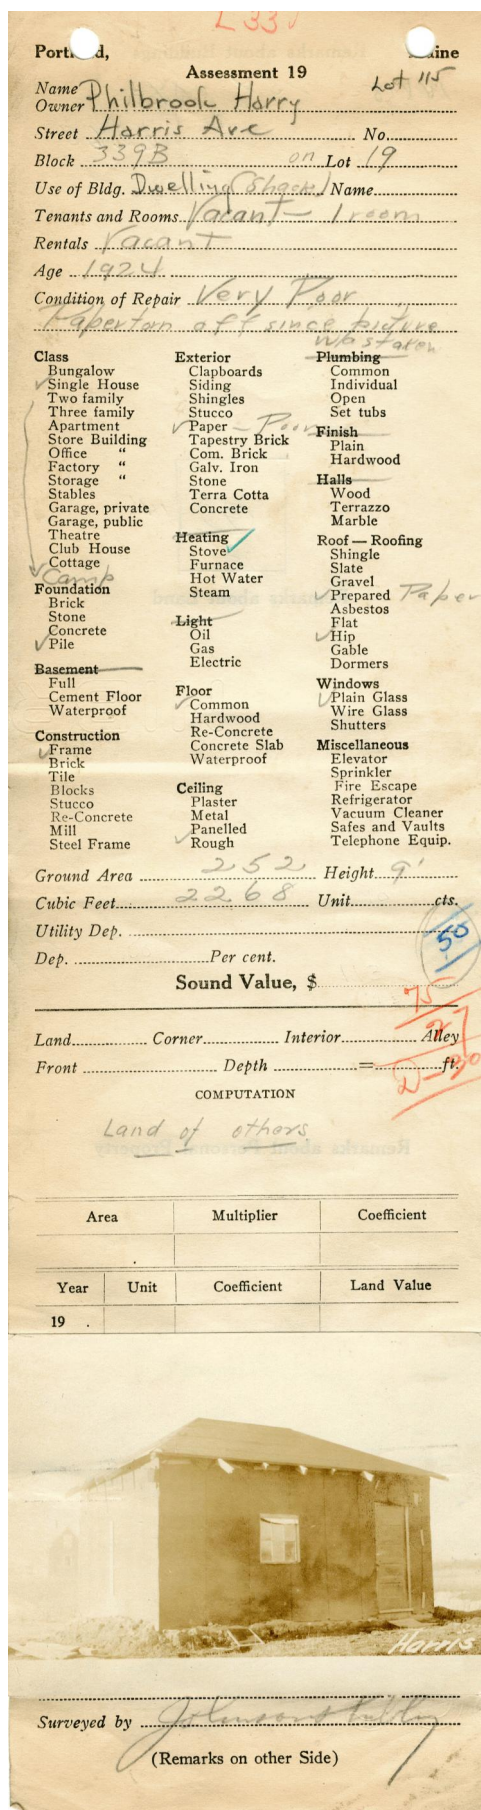 L33
Portland, Maine
Assessment 19
Lot 115
Name
Owner Philbrook Harry
Street Harris Ave No.
Block 339B on Lot 19
Use of Bldg. Dwelling (Shack) Name
Tenants and Rooms Vacant - 1 room
Rentals Vacant
Age 1924
Condition of Repair Very Poor
Paper tan off since picture
was taken
Class
Bungalow
Single House
Two family
Three family
Apartment
Store Building
Office "
Factory "
Storage "
Stables
Garage, private
Garage, public
Theatre
Club House
Cottage
Camp
Foundation
Brick
Stone
Concrete
Pile
Basement
Full
Cement Floor
Waterproof
Construction
Frame
Brick
Tile
Blocks
Stucco
Re-Concrete
Mill
Steel Frame
Exterior
Clapboards
Siding
Shingles
Stucco
Paper - Poor
Tapestry Brick
Com. Brick
Galv. Iron
Stone
Terra Cotta
Concrete
Heating
Stove
Furnace
Hot Water
Steam
Light
Oil
Gas
Electric
Floor
Common
Hardwood
Re-Concrete
Concrete Slab
Waterproof
Ceiling
Plaster
Metal
Panelled
Rough
Plumbing
Common
Individual
Open
Set tubs
Finish
Plain
Hardwood
Halls
Wood
Terrazzo
Marble
Roof — Roofing
Shingle
Slate
Gravel
Prepared Paper
Asbestos
Flat
Hip
Gable
Dormers
Windows
Plain Glass
Wire Glass
Shutters
Miscellaneous
Elevator
Sprinkler
Fire Escape
Refrigerator
Vacuum Cleaner
Safes and Vaults
Telephone Equip.
Ground Area 252 Height 9'
Cubic Feet 2268 Unit cts.
Utility Dep.
50
Dep. Per cent.
Sound Value, $
75
27
Land Corner Interior Alley
Front Depth = ft.
D-30
COMPUTATION
Land of others
Area Multiplier Coefficient
Year Unit Coefficient Land Value
19 .
Harris
Surveyed by
(Remarks on other Side)